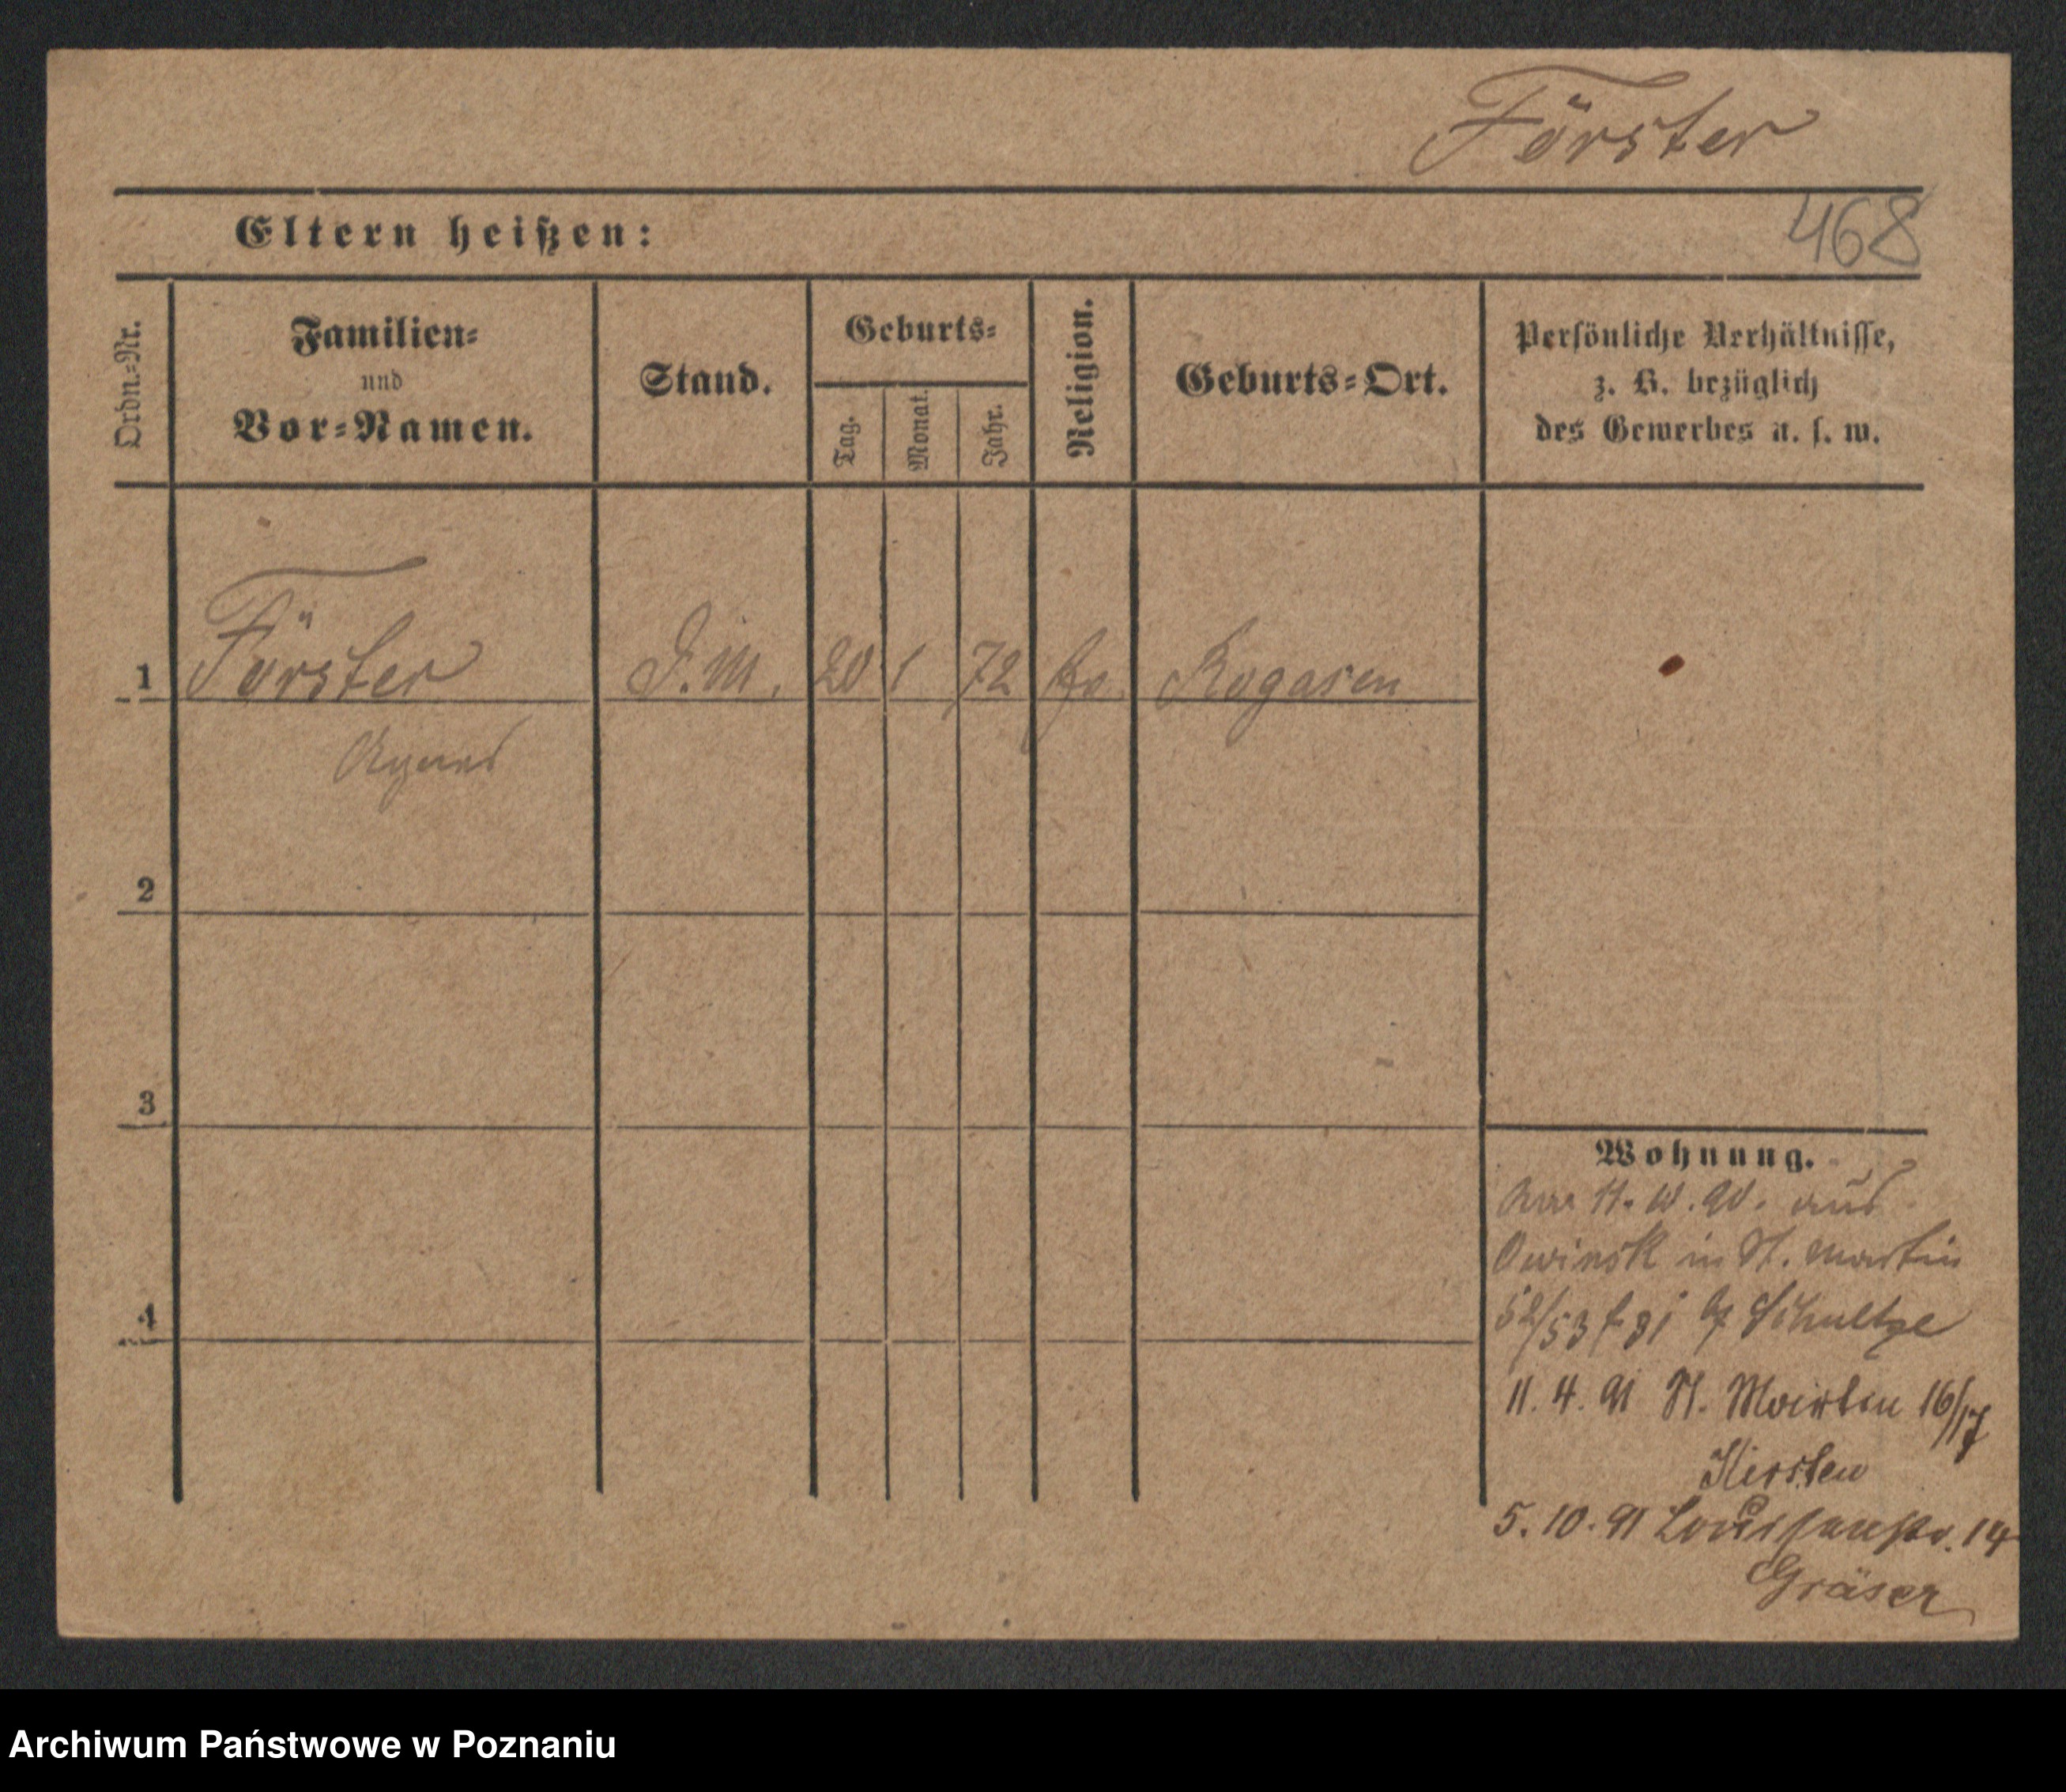 Förster
468
Eltern heißen:
Ordn.-Nr.
Familien-
und
Vor-Namen.
Stand.
Geburts-
Tag.
Monat.
Jahr.
Religion.
Geburts-Ort.
Persönliche Verhältnisse,
z. B. bezüglich
des Gewerbes u. s. w.
1 Förster D.M. 20 1 72 Rogasen
Agnes
2
3
4
Wohnung.
11. 10. 90. aus
Owinsk in St. Martin
52/53 Schultze
11. 4. 91 St. Martin 16/17
Kirsten
5. 10. 91 Louisenstr. 14
Gräser
Archiwum Państwowe w Poznaniu